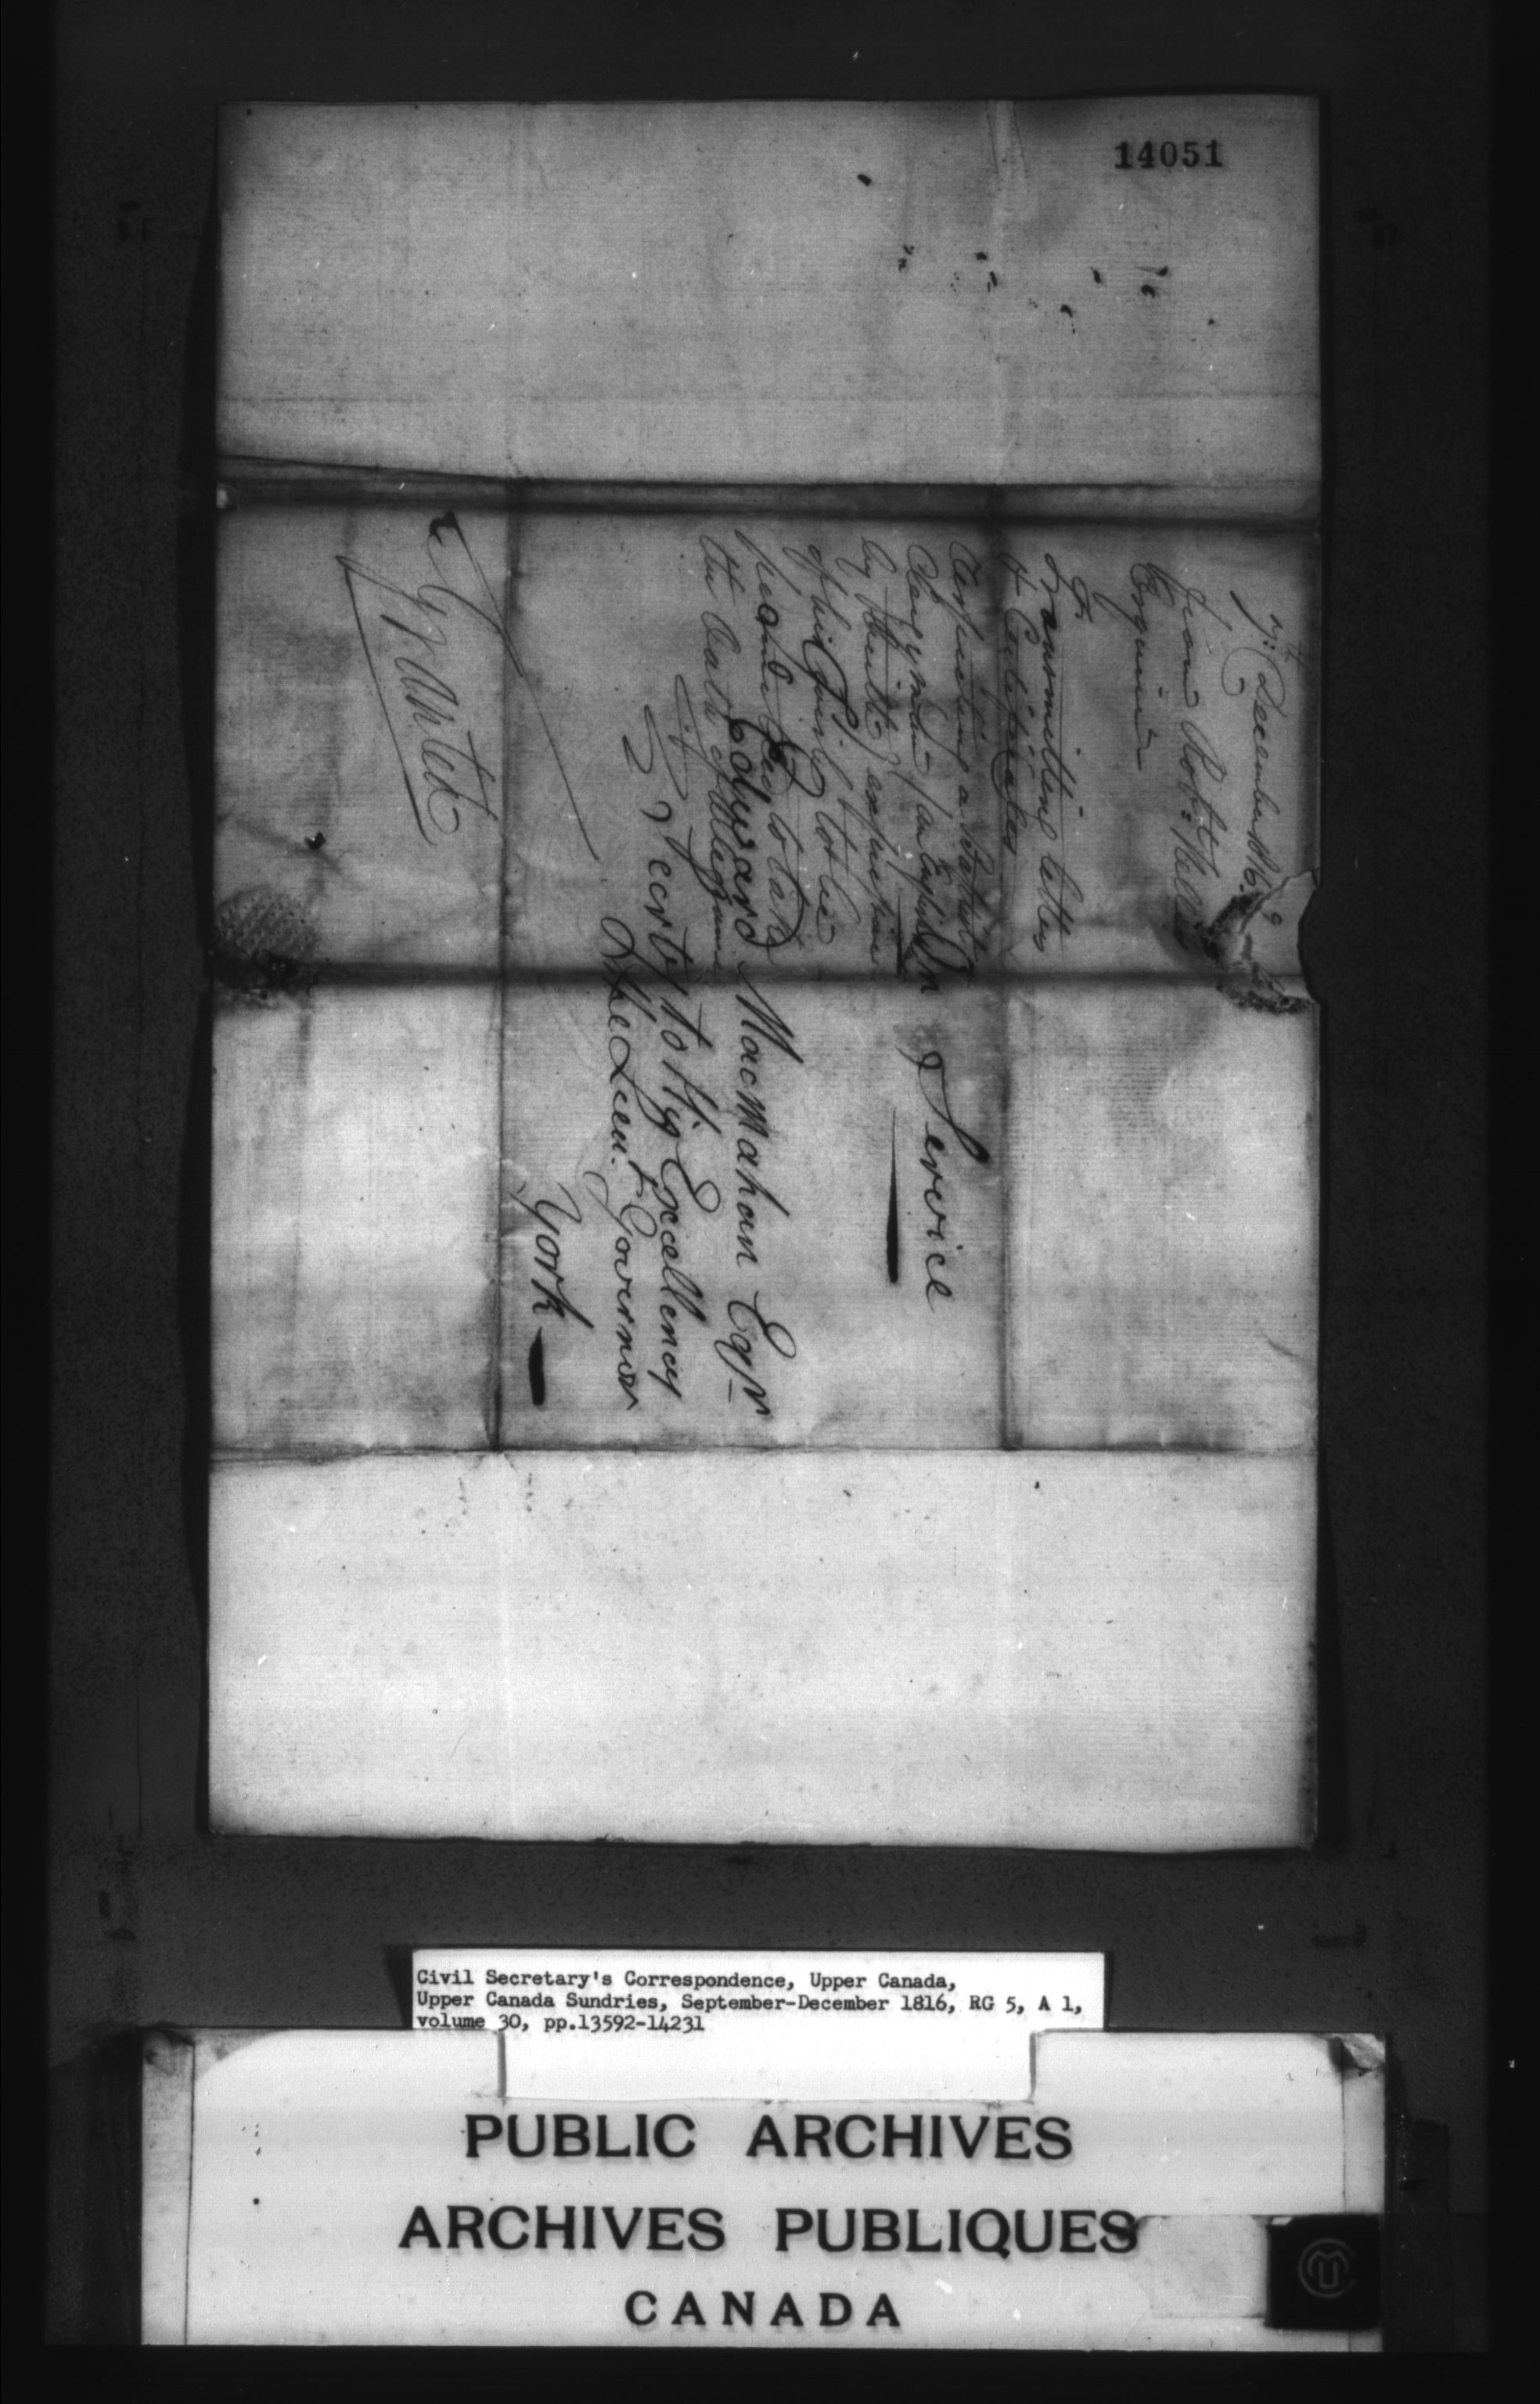 14051
7th December 1816.
from Robt. Nelles
Esquire
transmitting letter
& Certificates
respecting a Baptist
Clergyman / an
by
of his to be
to take
the Oath of Allegiance
On Service
Edward MacMahon Esqr
Secrty to His Excellency
The Lieut. Governor
York
Granted
Civil Secretary's Correspondence, Upper Canada,
Upper Canada Sundries, September-December 1816, RG 5, A 1,
volume 30, pp.13592-14231
PUBLIC ARCHIVES
ARCHIVES PUBLIQUES
CANADA